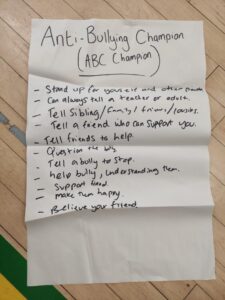 Anti-Bullying Champion
(ABC Champion)
- Stand up for yourself and other people
- Can always tell a teacher or adult.
- Tell Sibling/Family/friends/cousins.
- Tell a friend who can support you.
- Tell friends to help.
- Question the bully
- Tell a bully to stop.
- help bully, understanding them.
- Support friend.
- make them happy.
- Believe your friend.